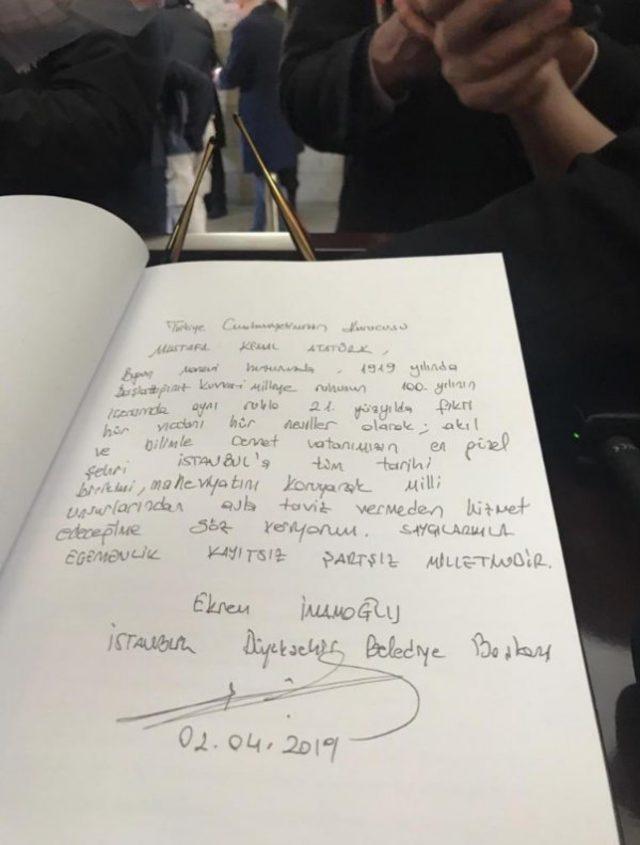 Türkiye Cumhuriyetinin Kurucusu
MUSTAFA KEMAL ATATÜRK,
manevi huzurunda, 1919 yılında
Başlattığınız Kuvvai Milliye ruhunun 100. yılının
içerisinde aynı ruhla 21. yüzyılda fikri
hür vicdanı hür nesiller olarak; akıl
ve bilimle cennet vatanımızın en güzel
şehri İSTANBUL'a tüm tarihi
birikimi, maneviyatını koruyarak milli
unsurlarından asla taviz vermeden hizmet
edeceğime söz veriyorum. SAYGILARIMLA
EGEMENLİK KAYITSIZ ŞARTSIZ MİLLETİNDİR.
Ekrem İMAMOĞLU
İSTANBUL Büyükşehir Belediye Başkanı
02.04.2019